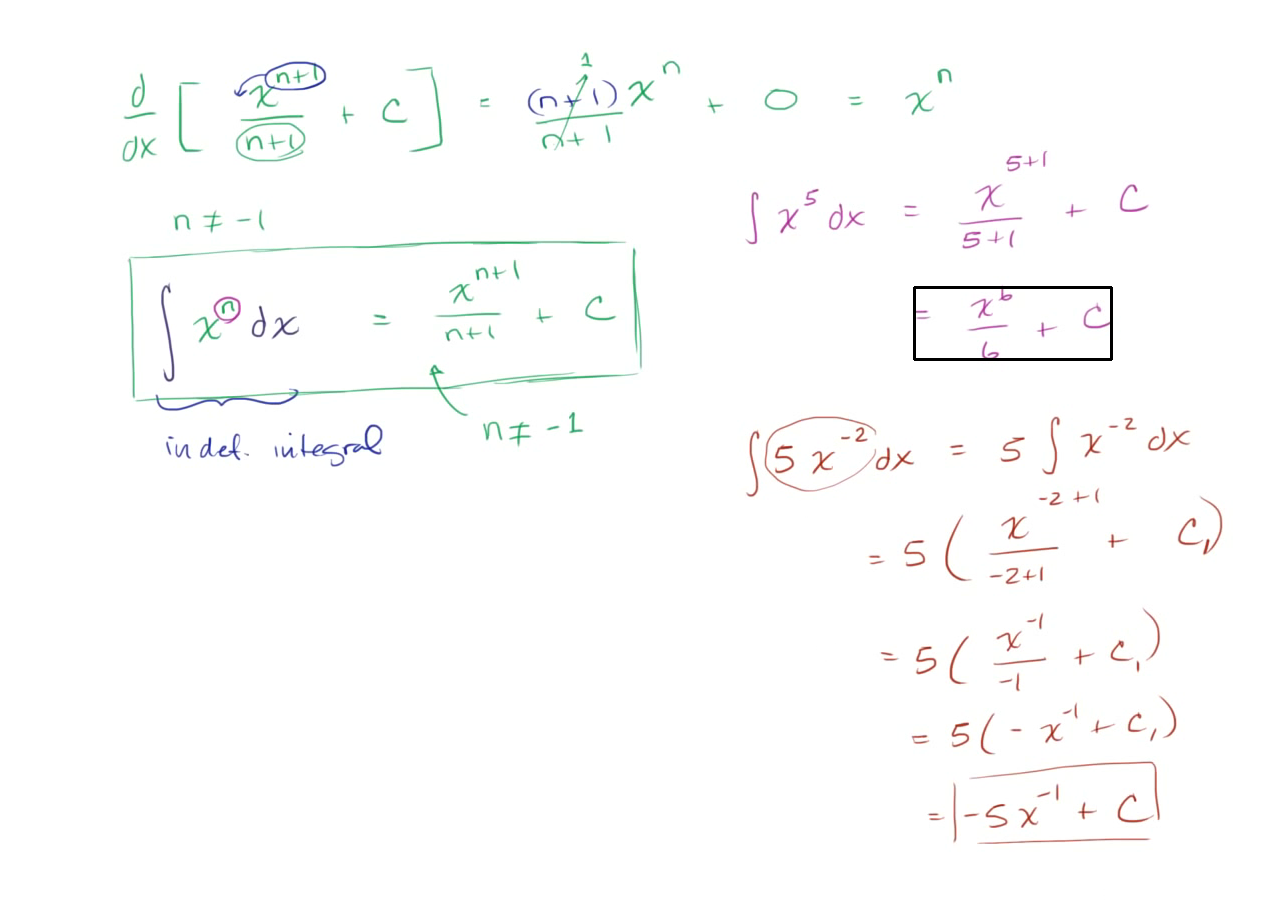 d/dx [ x^(n+1)/(n+1) + C ] = (n+1)x^n/(n+1) + 0 = x^n
1
n ≠ -1
∫ x^n dx = x^(n+1)/(n+1) + C
indef. integral
n ≠ -1
∫ x^5 dx = x^(5+1)/(5+1) + C
= x^6/6 + C
∫ 5x^(-2) dx = 5 ∫ x^(-2) dx
= 5 ( x^(-2+1)/(-2+1) + C₁)
= 5 ( x^(-1)/(-1) + C₁)
= 5 ( - x^(-1) + C₁)
= -5x^(-1) + C